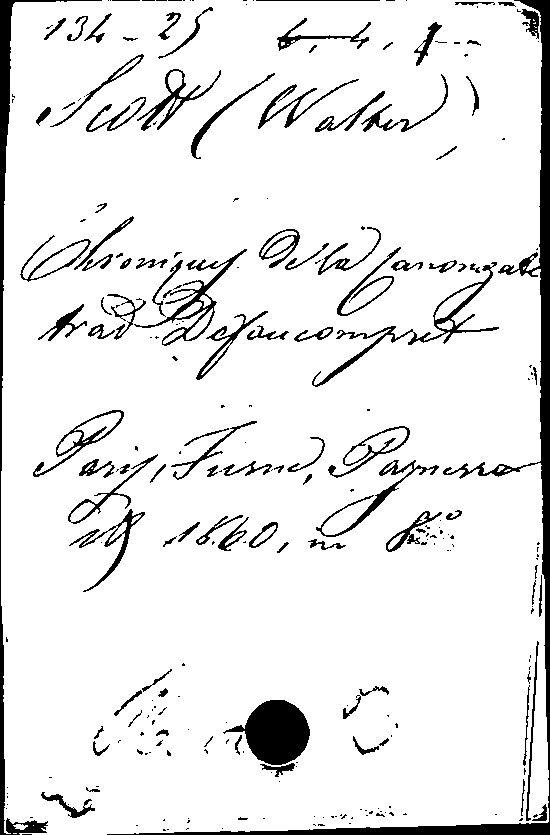 134-25 4. 4.
Scott (Walter)
Chroniques de la Canongate
trad Defaucompret
Paris, Furne, Pagnerre
ill 1860, in 8°